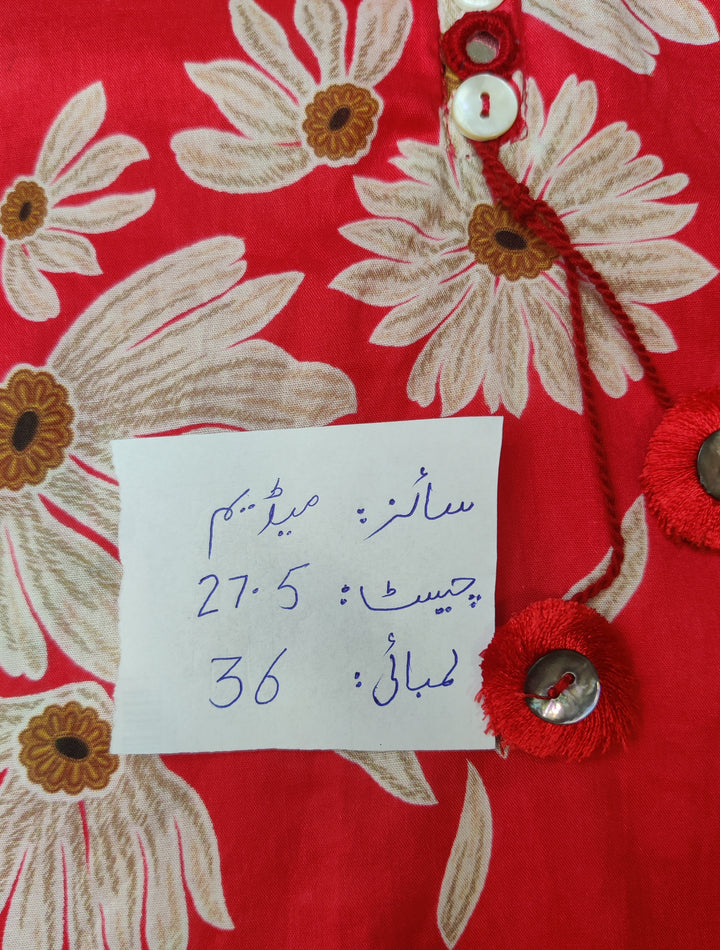 سائز: میڈیم
چیسٹ: 27.5
لمبائی: 36